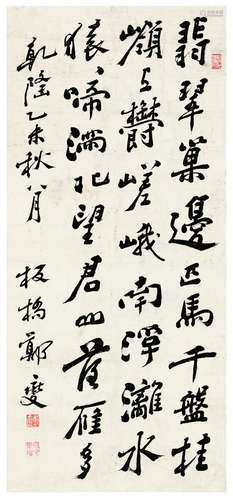 翡翠巢邊匹馬千盤桂
嶺上欝嵯峨南浮灕水
猿啼滿北望君山雁多
乾隆乙未秋八月 板橋鄭燮